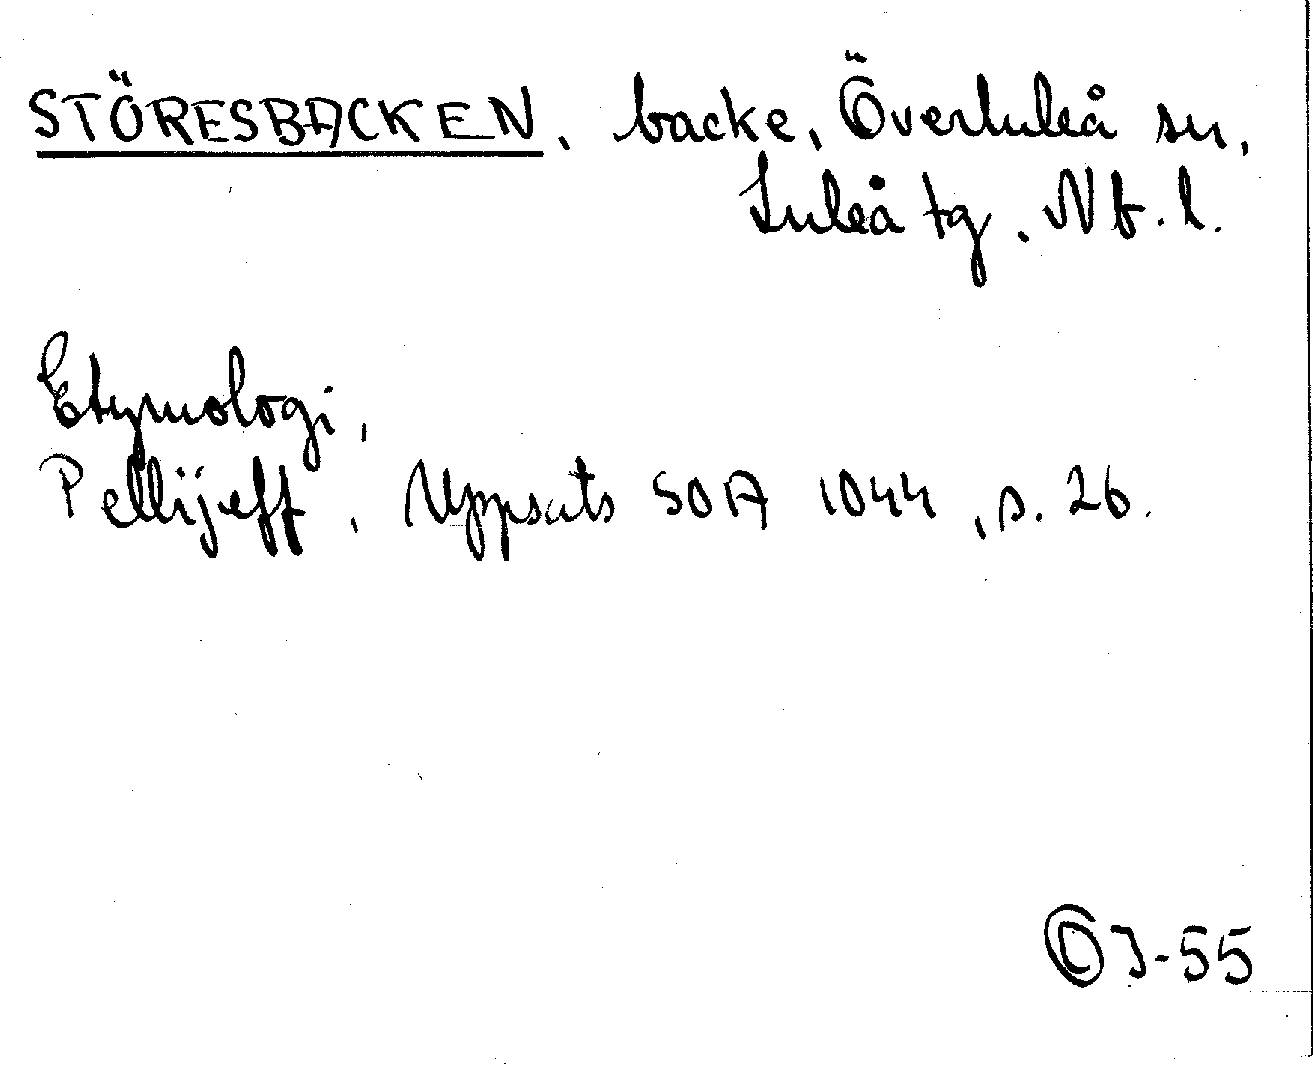 STÖRESBACKEN, backe, Överluleå sn,
Luleå tg. Nb. l.
Etymologi,
Pellijeff, Uppsats SOA 1044, s. 26.
© J-55